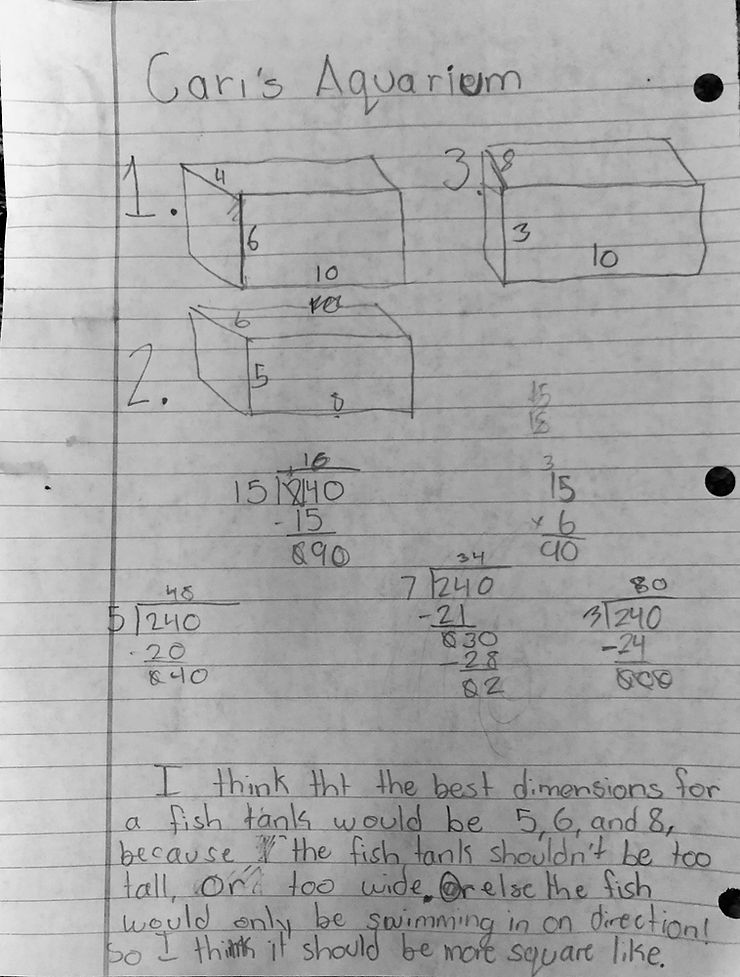 Cari's Aquarium
1.
4
6
10
3.
8
3
10
2.
6
5
8
15
18
16
15 240
-15
090
3
15
x 6
90
48
5 240
-20
040
34
7 240
-21
030
-28
02
80
3 240
-24
000
I think tht the best dimensions for
a fish tank would be 5, 6, and 8,
because the fish tank shouldn't be too
tall, or too wide. Or else the fish
would only be swimming in on direction!
So I think it should be more square like.